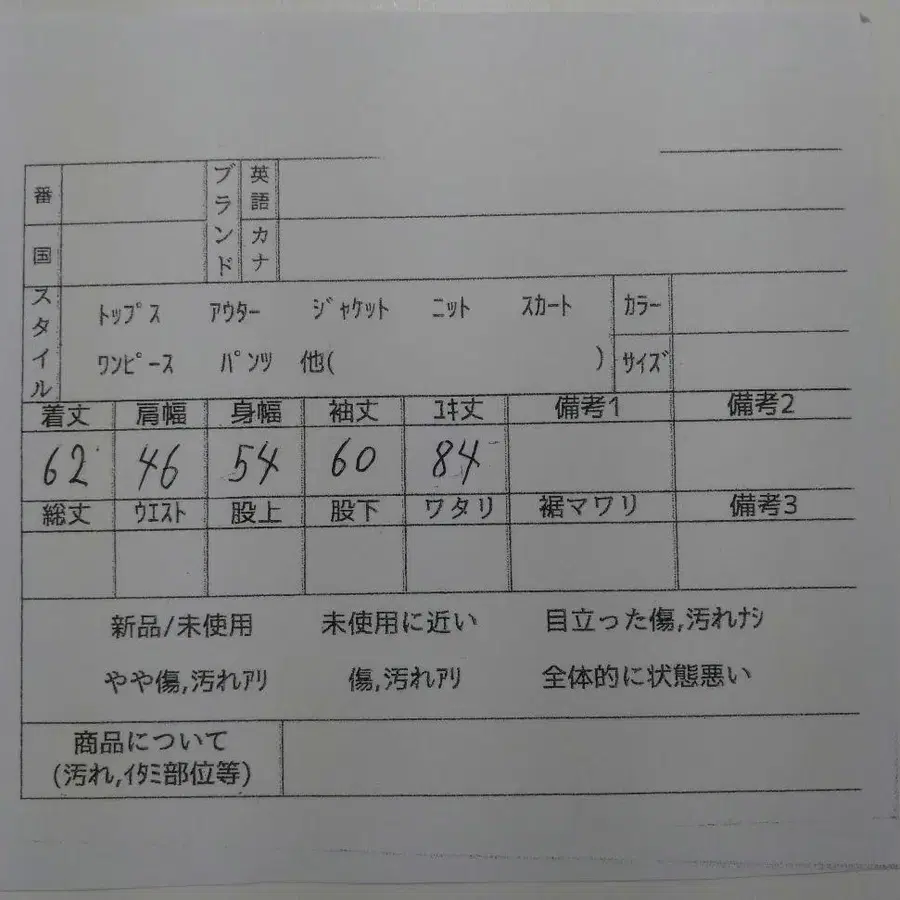 番 ブランド 英語
国 カナ
スタイル ﾄｯﾌﾟｽ ｱｳﾀｰ ｼﾞｬｹｯﾄ ﾆｯﾄ ｽｶｰﾄ ｶﾗｰ
ﾜﾝﾋﾟｰｽ ﾊﾟﾝﾂ 他( ) ｻｲｽﾞ
着丈 肩幅 身幅 袖丈 ﾕｷ丈 備考1 備考2
62 46 54 60 84
総丈 ｳｴｽﾄ 股上 股下 ワタリ 裾マワリ 備考3
新品/未使用 未使用に近い 目立った傷,汚れﾅｼ
やや傷,汚れｱﾘ 傷,汚れｱﾘ 全体的に状態悪い
商品について
(汚れ,ｲﾀﾐ部位等)